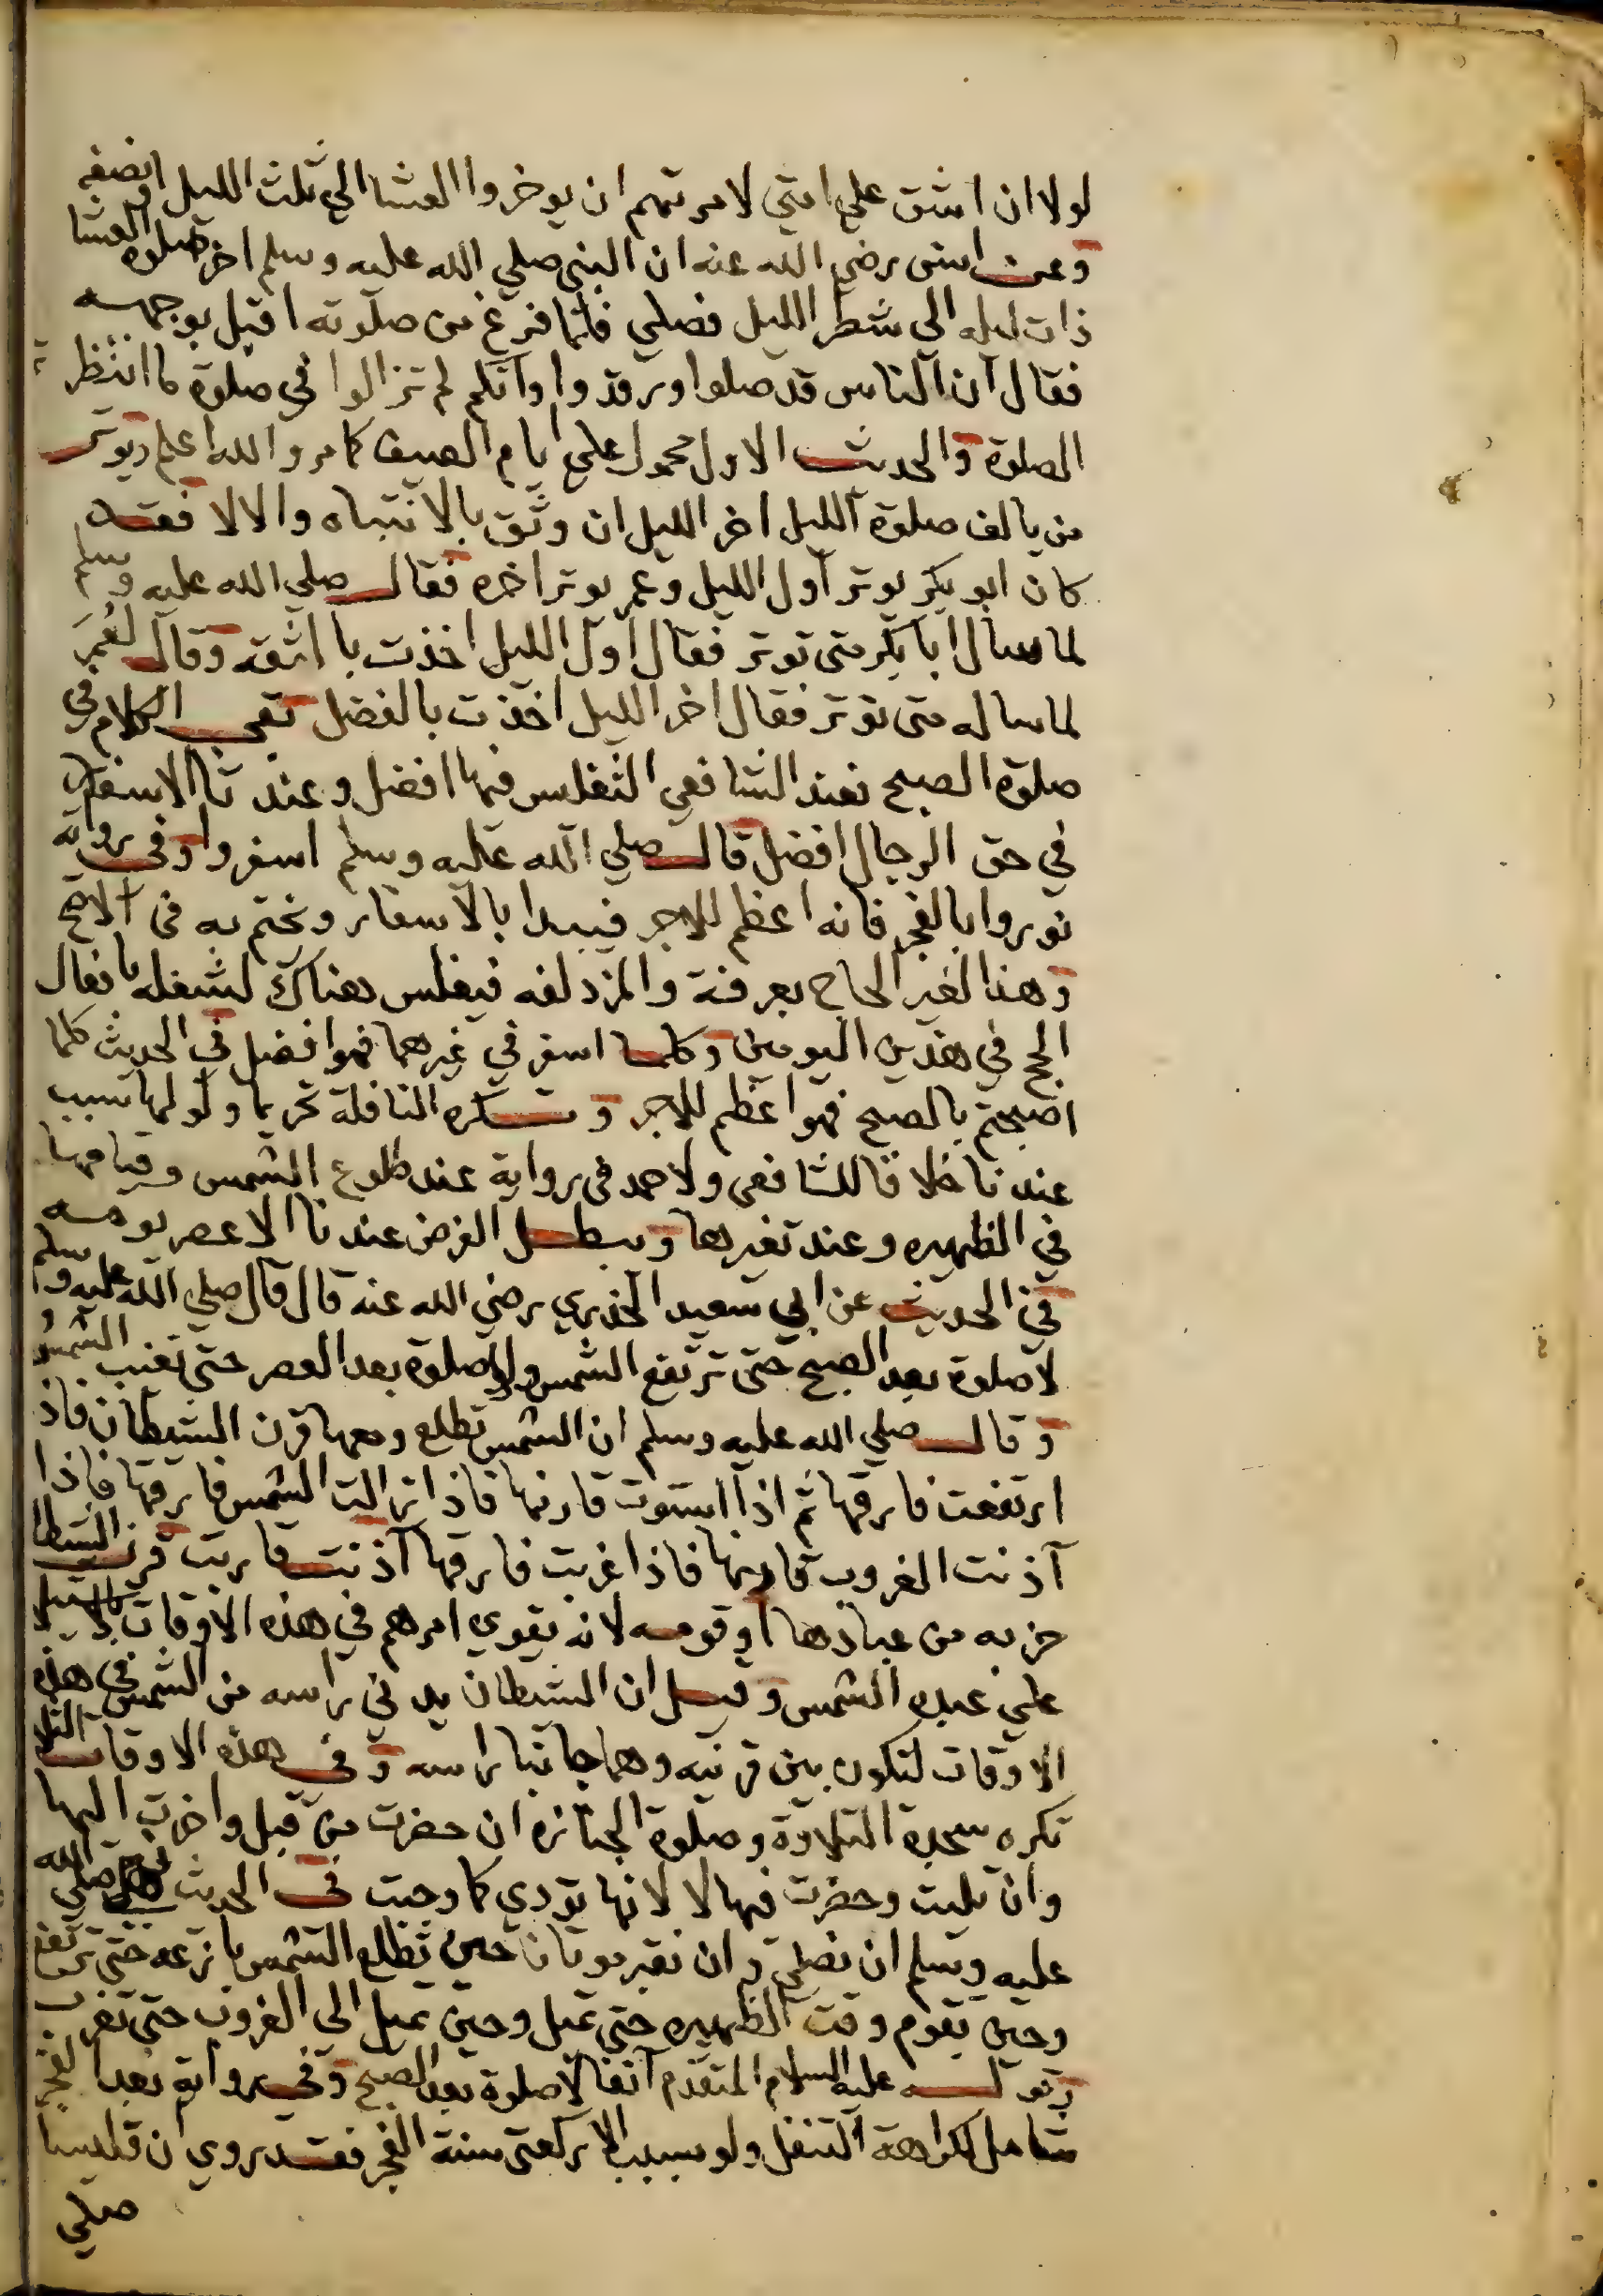 لولا ان اشق علي امتي لامرتهم ان يوخروا العشا الي ثلث الليل او نصفه
وعن انس رضي الله عنه ان النبي صلي الله عليه وسلم اخر صلوة العشا
ذات ليله الي شطر الليل فصلي فلما فرغ من صلوته اقبل بوجهه
فقال ان الناس قد صلوا ورقدوا وانكم لم تزالوا في صلوة ما انتظرتم
الصلوة والحديث الاول محمول علي ايام الصيف كما مر والله اعلم ويوتر
من يالف صلوة الليل اخر الليل ان وثق بالانتباه والا لا فقد
كان ابو بكر يوتر اول الليل وعمر يوتر اخره فقال صلي الله عليه وسلم
لما سال ابا بكر متي توتر فقال اول الليل اخذت بالثقه وقال لعمر
لما ساله متي توتر فقال اخر الليل اخذت بالفضل بقي الكلام في
صلوة الصبح فعند الشافعي التغليس فيها افضل وعندنا الاسفار
في حق الرجال افضل قال صلي الله عليه وسلم اسفروا وفي رواية
نوروا بالفجر فانه اعظم للاجر فيبدا بالاسفار ويختم به في الاصح
وهذا لغير الحاج بعرفة والمزدلفه فيغلس هناك لشغله بافعال
الحج في هذين اليومين وكلما اسفر في غيرهما فهو افضل في الحديث كلما
اصبحتم بالصبح فهو اعظم للاجر وتكره النافلة تحريما ولو لها سبب
عندنا خلافا للشافعي ولاحمد في رواية عند طلوع الشمس وقيامها
في الظهيره وعند تغيرها ويبطل الفرض عندنا الا عصر يومه
في الحديث عن ابي سعيد الخدري رضي الله عنه قال قال صلي الله عليه وسلم
لا صلوة بعد الصبح حتي ترتفع الشمس ولا صلوة بعد العصر حتي تغيب الشمس
وقال صلي الله عليه وسلم ان الشمس تطلع ومعها قرن الشيطان فاذا
ارتفعت فارقها ثم اذا استوت قارنها فاذا زالت الشمس فارقها فاذا
آذنت الغروب قارنها فاذا غربت فارقها آذنت قاربت قرن الشيطا
حزبه من عبادها او قومه لانه يقوي امرهم في هذه الاوقات
علي عبده الشمس وقيل ان الشيطان يدني راسه من الشمس في هذه
الاوقات لتكون بين قرنيه وهما جانبا راسه وفي هذه الاوقات الثلا
تكره سجدة التلاوة وصلوة الجنازه ان حضرت من قبل واخرت اليها
وان تليت وحضرت فيها لا لانها تودي كما وجبت في الحديث نهي صلي الله
عليه وسلم ان نصلي وان نقبر موتانا حين تطلع الشمس بازغه حتي ترتفع
وحين يقوم وقت الظهيره حتي تميل وحين تميل الي الغروب حتي تغرب
وقوله عليه السلام المتقدم آنفا لا صلوة بعد الصبح وفي رواية بعد الفجر
شامل لكراهة التنفل ولو بسبب الا ركعتي سنة الفجر فقد روي ان قليسا
صلي